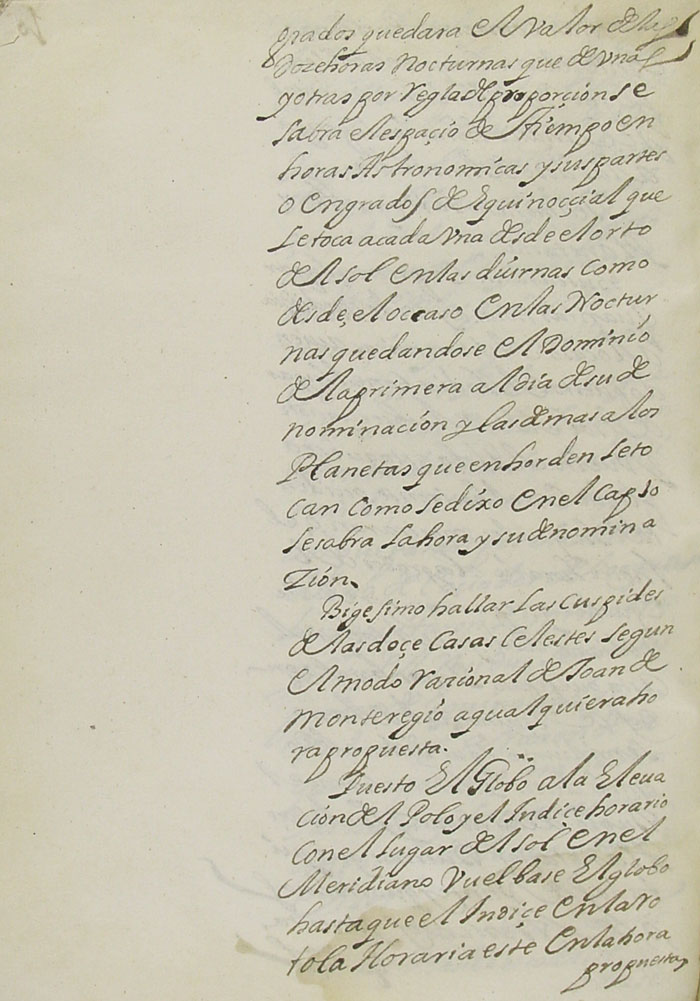 grados quedara el valor de las
Doze horas Nocturnas que de unas
y otras por regla de proporción se
sabra el espaçio de Tiempo en
horas Astronomicas y sus partes
o en grados de Equinocçial que
le toca a cada una desde el orto
del sol en las diurnas como
desde el occaso en las Noctur
nas quedandose el Dominio
de la primera al dia de su de
nominación y las demas a los
Planetas que en horden se to
can como se dixo en el cap
se sabra la hora y su denomina
zión.
Bigesimo hallar las cuspides
de las doçe Casas Celestes segun
el modo razional de Joan de
Monteregio a qualquiera ho
ra propuesta.
Puesto El Globo a la Eleva
ción del Polo y el Indice horario
con el lugar del sol en el
Meridiano vuelbase El globo
hasta que el Indice en la ro
tola Horaria este en la hora
propuesta,